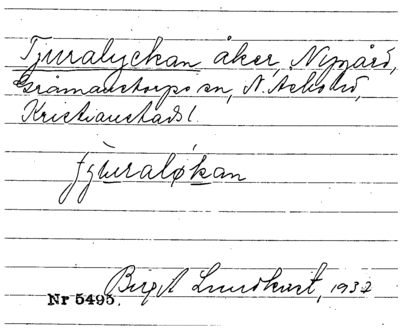 Tjuralyckan åker, Nygård,
Gråmanstorps sn, N. Åsbo hd,
Kristianstads l.
Birgit Lundkvist, 1932
Nr 5495.